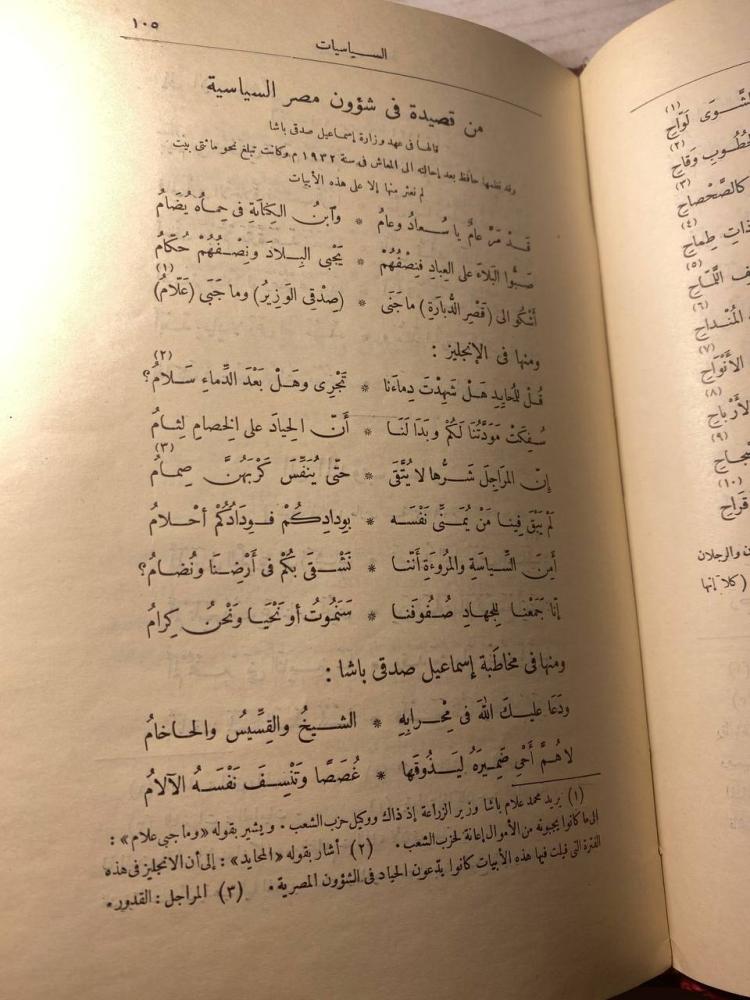 ١٠٥
السياسيات
من قصيدة فى شؤون مصر السياسية
قالها فى عهد وزارة إسماعيل صدقى باشا
وقد نظمها حافظ بعد إحالته الى المعاش فى سنة ١٩٣٢ م وكانت تبلغ نحو مائتى بيت
لم نعثر منها إلا على هذه الأبيات
قَدْ مَرَّ عامٌ يا سُعادُ وعامُ * وٱبنُ الكِنانةِ فى حِماهُ يُضَامُ
صَبُّوا البَلاءَ على العِبادِ فنِصْفُهُمْ * يَجْبِى البِلادَ ونِصْفُهُمْ حُكّامُ
أَشْكو الى (قَصْرِ الدُّبارَةِ) ما جَنَى * (صِدْقِى الوَزِيرُ) وما جَبَى (عَلّامُ) (١)
ومنها فى الإنجليز :
قُلْ لِلْمُحايِدِ هَلْ شَهِدْتَ دِماءَنا * تَجْرِى وهَلْ بَعْدَ الدِّماءِ سَلامُ؟ (٢)
سُفِكَتْ مَوَدَّتُنا لَكُمْ وبَدَا لَنَا * أَنّ الحِيادَ على الخِصامِ لِثامُ
إنّ المَراجِلَ شَرُّها لا يُتَّقَى * حتّى يُنَفِّسَ كَرْبَهُنَّ صِمامُ (٣)
لَمْ يَبْقَ فِينا مَنْ يُمَنِّى نَفْسَه * بِودادِكُمْ فوِدادُكُمْ أحْلامُ
أَمِنَ السِّياسَةِ والمُرُوءَةِ أَنّنا * نَشْقَى بِكُمْ فى أَرْضِنَا ونُضامُ؟
إنّا جَمَعْنا لِلجِهادِ صُفُوفَنا * سَنَمُوتُ أو نَحْيَا ونَحْنُ كِرامُ
ومنها فى مخاطَبة إسماعيل صدقى باشا :
ودَعَا عليكَ اللهَ فى مِحْرابِهِ * الشيخُ والقِسِّيسُ والحاخامُ
لاهُمَّ أَحْىِ ضَمِيرَهُ لِيَذُوقَها * غُصَصًا وتَنْسِفَ نَفْسَهُ الآلامُ
(١) يريد محمد علام باشا وزير الزراعة إذ ذاك ووكيل حزب الشعب . ويشير بقوله «وما جبى علام» :
إلى ما كانوا يجبونه من الأموال إعانة لحزب الشعب . (٢) أشار بقوله «المحايد» : إلى أن الانجليز فى هذه
الفترة التى قيلت فيها هذه الأبيات كانوا يدّعون الحياد فى الشؤون المصرية . (٣) المراجل : القدور .
(١)
الشَّوَى لَوّاحِ
(٢)
وَقاحِ
(٣)
كالصَّحْصاحِ
(٤)
ذاتِ طِماحِ
(٥)
(٦)
المُنْداحِ
(٧)
الأَنْواحِ
(٨)
(٩)
(١٠)
والرجلان
(كلا إنها